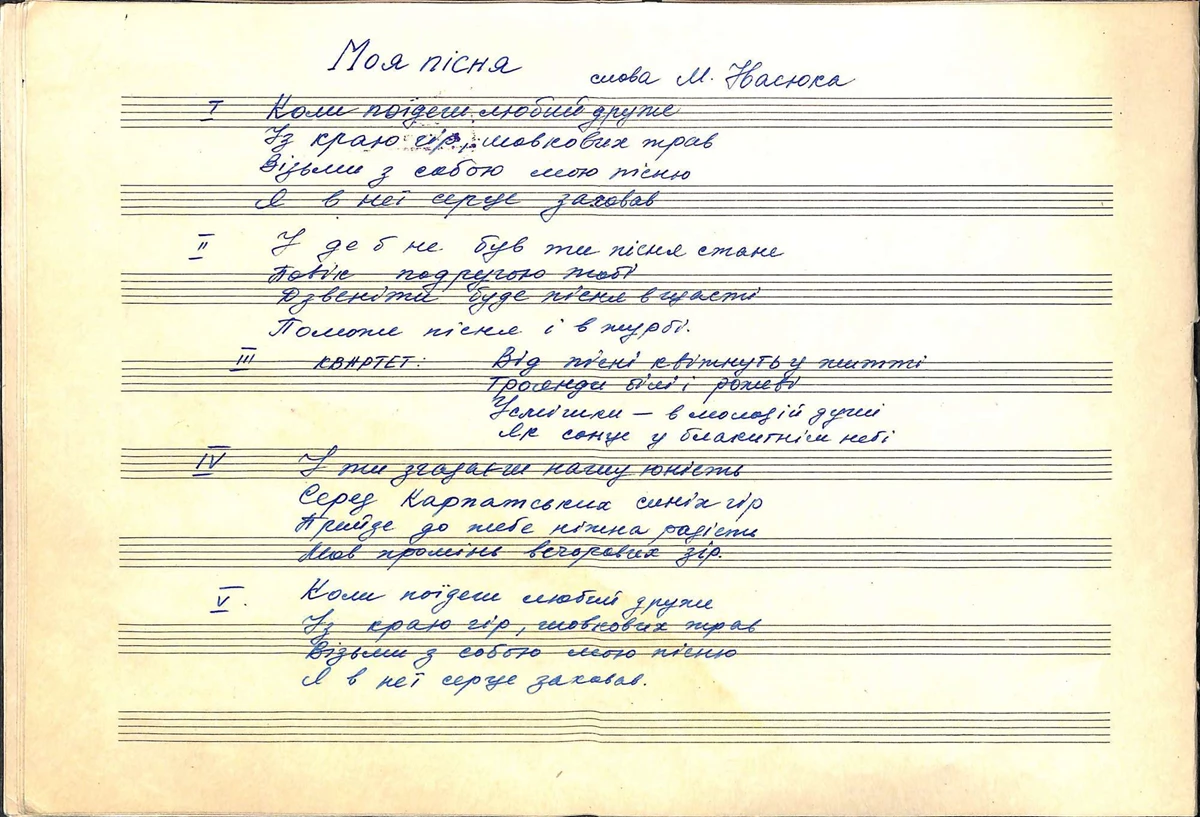 Моя пісня
слова М. Насюка
I Коли поїдеш любий друже
Із краю гір, шовкових трав
Візьми з собою мою пісню
Я в неї серце заховав
II І де б не був ти пісня стане
Повік подругою тобі
Дзвеніти буде пісня в щасті
Поможе пісня і в журбі.
III КВАРТЕТ: Від пісні квітнуть у житті
Троянди білі і рожеві
Усмішки – в молодій душі
Як сонце у блакитнім небі
IV І ти згадаєш нашу юність
Серед Карпатських синіх гір
Прийде до тебе ніжна радість
Мов промінь вечорових зір.
V. Коли поїдеш любий друже
Із краю гір, шовкових трав
Візьми з собою мою пісню
Я в неї серце заховав.